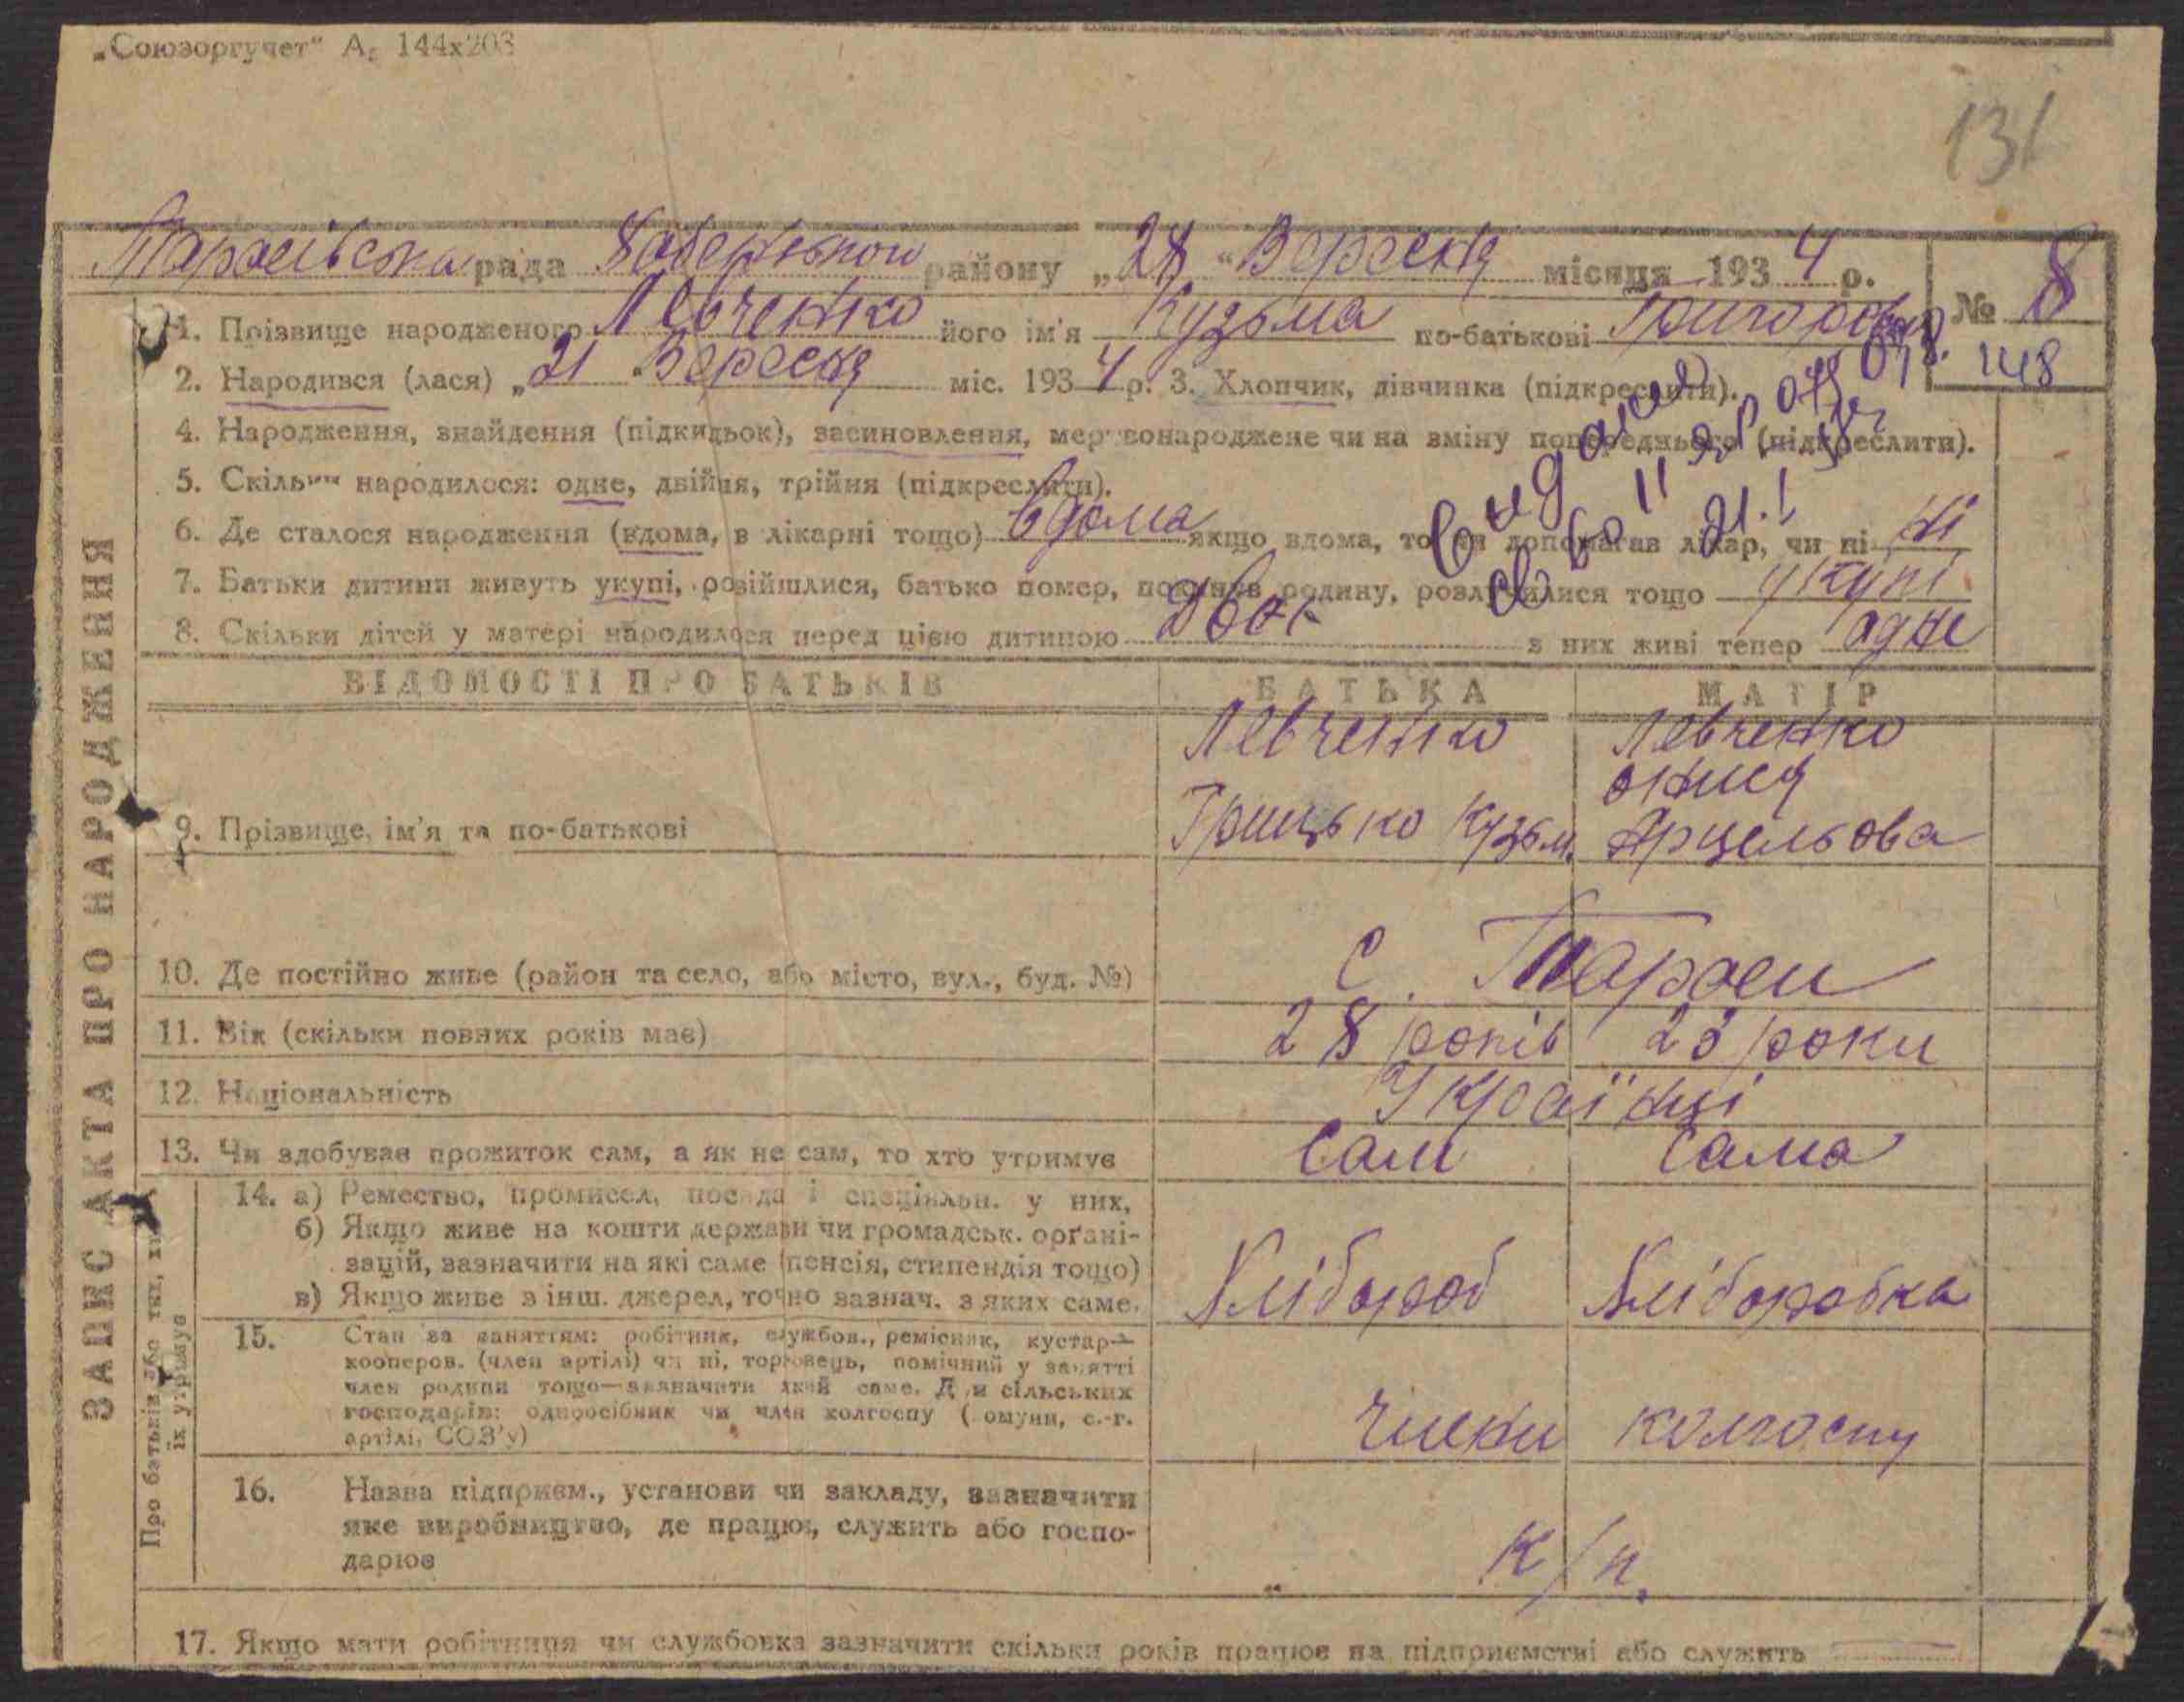 „Союзоргучет“ А₅ 144х203
131
Тарасівська рада району „28“ Вересня місяця 1934 р.
№ 8
1. Прізвище народженого Левченко його ім'я Кузьма по-батькові Григорович
148
2. Народився (лася) „21 Вересня міс. 1934 р. 3. Хлопчик, дівчинка (підкреслити).
4. Народження, знайдення (підкидьок), засиновлення, мертвонароджене чи на зміну попереднього (підкреслити).
5. Скільки народилося: одне, двійня, трійня (підкреслити).
6. Де сталося народження (вдома, в лікарні тощо) вдома якщо вдома, то чи допомагав лікар, чи ні ні
7. Батьки дитини живуть укупі, розійшлися, батько помер, покинув родину, розлучилися тощо укупі
8. Скільки дітей у матері народилося перед цією дитиною двое з них живі тепер одне
ВІДОМОСТІ ПРО БАТЬКІВ БАТЬКА МАТІР
Левченко Левченко
9. Прізвище, ім'я та по-батькові Грицько Кузьм.
10. Де постійно живе (район та село, або місто, вул., буд. №) с. Тараси
11. Вік (скільки повних років має) 28 років 23 роки
12. Національність Українці
13. Чи здобуває прожиток сам, а як не сам, то хто утримує Сам Сама
14. а) Ремество, промисел, посада і спеціяльн. у них,
б) Якщо живе на кошти держави чи громадськ. орґані-
зацій, зазначити на які саме (пенсія, стипендія тощо)
в) Якщо живе з інш. джерел, точно зазнач. з яких саме. Хлібороб Хліборобка
15. Стан за заняттям: робітник, службов., ремісник, кустар-
кооперов. (член артілі) чи ні, торговець, помічний у занятті
член родини тощо—зазначити який саме. Для сільських
господарів: одноосібник чи член колгоспу (комуни, с.-г.
артілі, СОЗ'у) Члени колгоспу
16. Назва підприєм., установи чи закладу, зазначити
яке виробництво, де працює, служить або госпо-
дарює
17. Якщо мати робітниця чи службовка зазначити скільки років працює на підприємстві або служить
ЗАПИС АКТА ПРО НАРОДЖЕННЯ
Про батьків або тих, хто
їх утримує